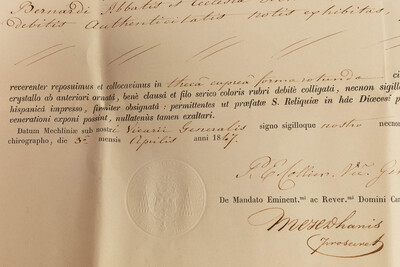 Bernardi Abbatis et Ecclesiæ
Debitis Authenticitatis notis exhibitas,
reverenter reposuimus et collocavimus in thecâ cupreâ formæ rotundæ
crystallo ab anteriori ornatâ, benè clausâ et filo serico coloris rubri debitè colligatâ, necnon sigill
hispanicâ impresso, firmiter obsignatâ: permittentes ut præfatæ S. Reliquiæ in hâc Diœcesi p
venerationi exponi possint, nullatenùs tamen exaltari.
Datum Mechliniæ sub nostri Vicarii Generalis signo sigilloque nostro necno
chirographo, die 8ª mensis Aprilis anni 1847.
Vic. Gen
De Mandato Eminent.mi ac Rever.mi Domini Ca
prosecret.